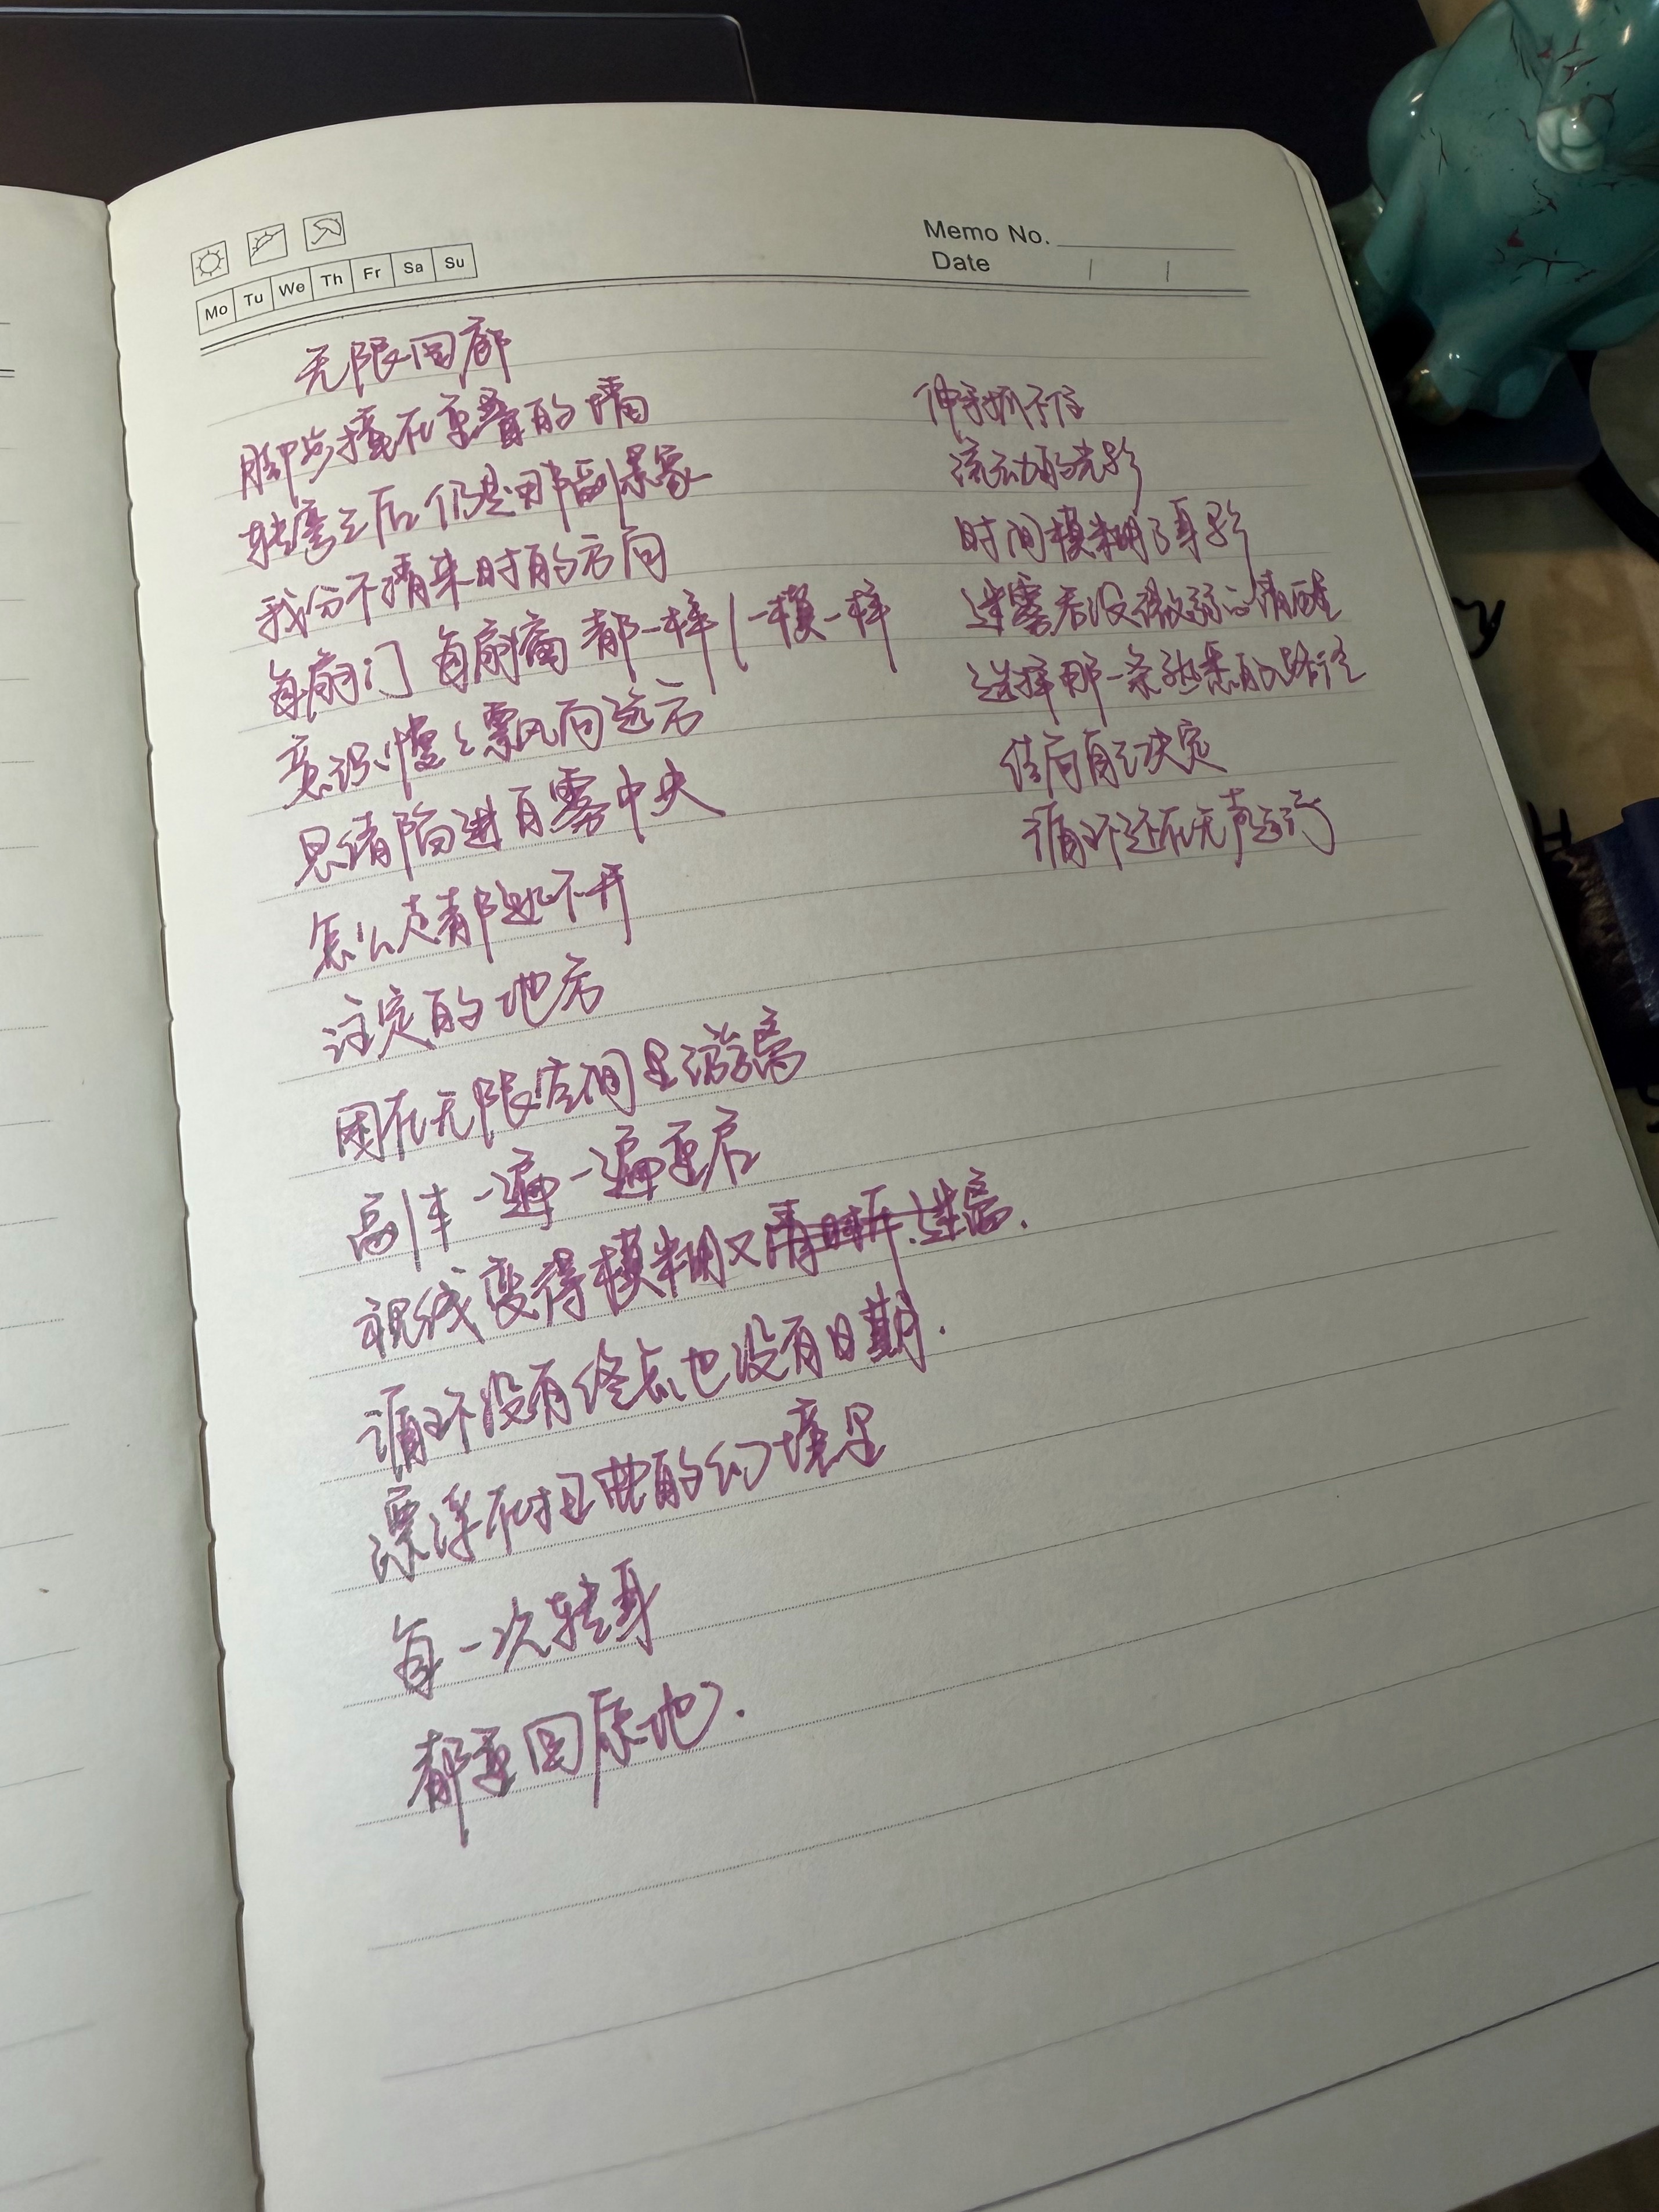 Memo No.
Date
Mo Tu We Th Fr Sa Su
无限回廊
脚步撞在重叠的墙
转弯之后仍是那副景象
我分不清来时的方向
每扇门 每扇窗 都一样/一模一样
意识慢慢飘向远方
思绪陷进白雾中央
怎么走都逃不开
注定的地方
困在无限空间里游离
副本一遍一遍重启
视线变得模糊又清晰.迷离.
循环没有终点也没有日期.
漂浮在扭曲的幻境里
每一次转身
都重回原地.
伸手抓不住
流动的光影
时间模糊了身影
迷雾吞没微弱的清醒
选择那一条熟悉的路径
结局自己决定
循环还在无声运行